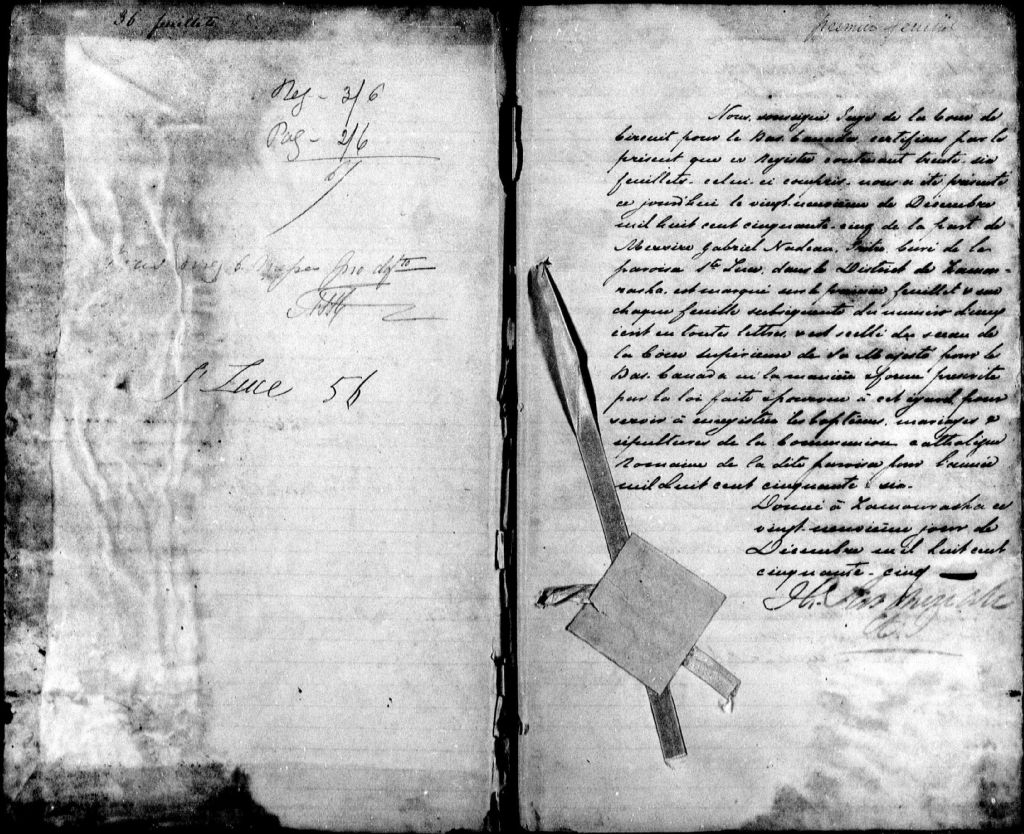 36 feuillets
Reg - 3/6
Pag - 2/6
6/
St Luce 56
premier feuillet
Nous, soussigné, Juge de la Cour de
Circuit pour le Bas Canada, certifions par le
présent que ce Registre contenant trente six
feuillets, celui-ci compris, nous a été présenté
ce jourd'hui le vingt neuvième de Décembre
mil huit cent cinquante-cinq de la part de
Messire Gabriel Nadeau, Prêtre Curé de la
paroisse Ste Luce, dans le District de Kamou-
raska, est marqué sur le premier feuillet & sur
chaque feuille subséquente du numéro d'icelle
écrit en toutes lettres, & est scellé du sceau de
la Cour Supérieure de Sa Majesté pour le
Bas-Canada en la manière & forme prescrite
par la loi faite & pourvue à cet égard pour
servir à enregistrer les baptêmes, mariages &
sépultures de la Communion catholique
Romaine de la dite paroisse pour l'année
mil huit cent cinquante-six.
Donné à Kamouraska ce
vingt-neuvième jour de
Décembre mil huit cent
cinquante-cinq